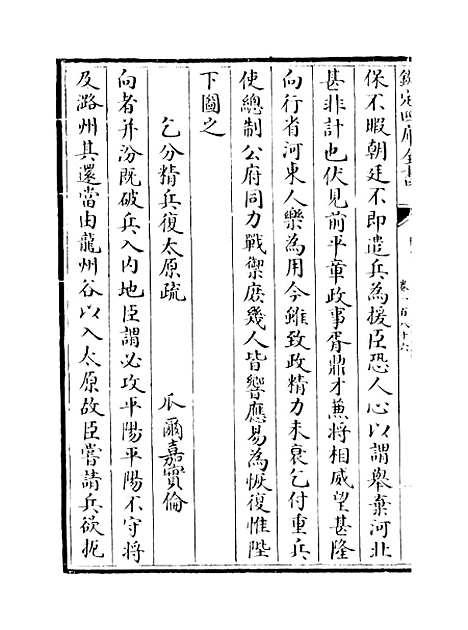 欽定四庫全書
卷一百八十六
保不暇朝廷不即遣兵為援臣恐人心以謂舉棄河北
甚非計也伏見前平章政事胥鼎才兼將相威望甚隆
向行省河東人樂為用今雖致政精力未衰乞付重兵
使總制公府同力戰禦庶幾人皆響應易為恢復惟陛
下圖之
乞分精兵復太原疏 爪爾嘉實倫
向者并汾既破兵入內地臣謂必攻平陽平陽不守將
及潞州其還當由龍州谷以入太原故臣嘗請兵欲扼